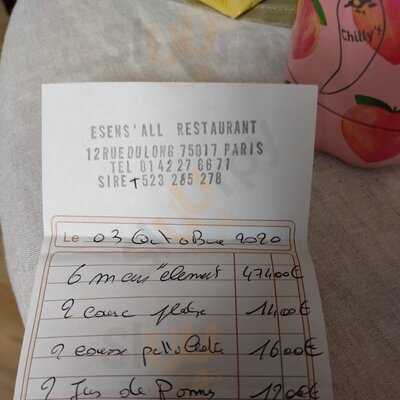 Chilly's
ESENS'ALL RESTAURANT
12 RUE DULONG 75017 PARIS
TEL 01 42 27 66 77
SIRET 523 285 278
Le 03 Octobre 2020
6 menu "element" 474,00€
2 14,00€
2 16,00€
2 Jus de Pomme 12,00€